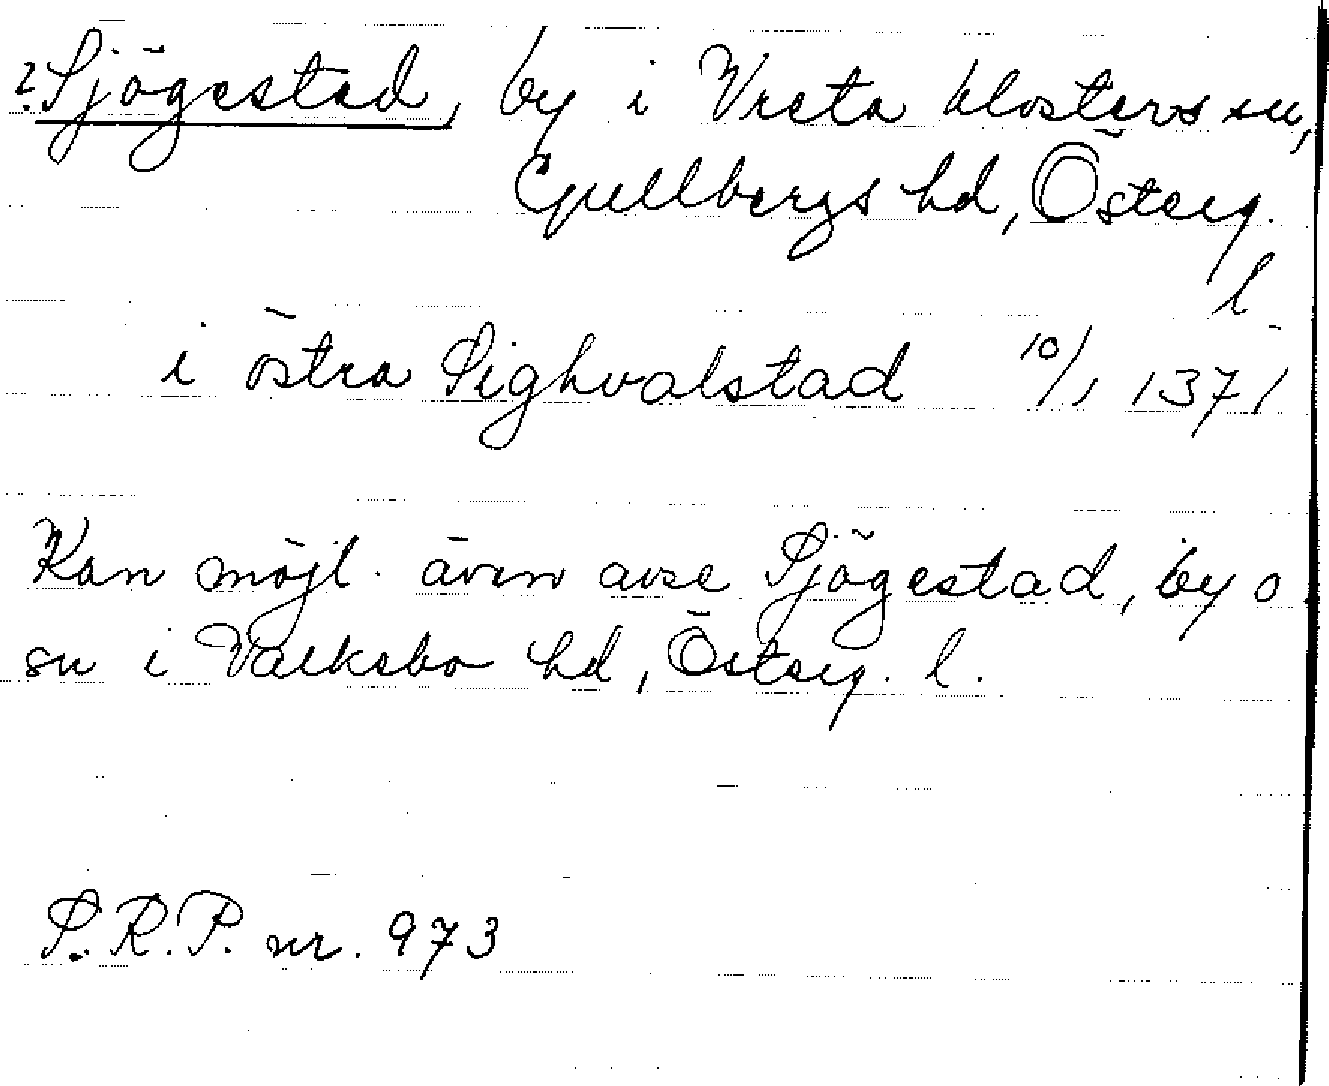 ?Sjögestad, by i Vreta klosters sn,
Gullbergs hd, Österg.
l
i östra Sighvalstad 10/1 1371
Kan möjl. även avse Sjögestad, by o
sn i Valkebo hd, Österg. l.
S.R.P. nr. 973